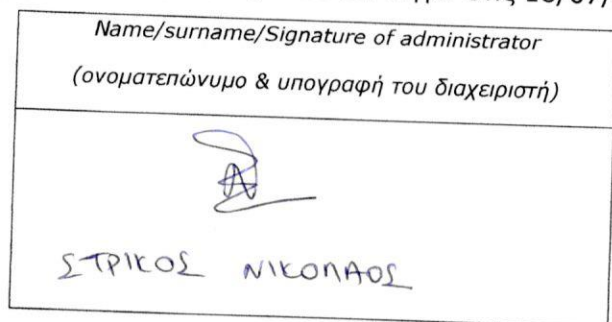 Name/surname/Signature of administrator
(ονοματεπώνυμο & υπογραφή του διαχειριστή)
ΣΤΡΙΚΟΣ ΝΙΚΟΛΑΟΣ